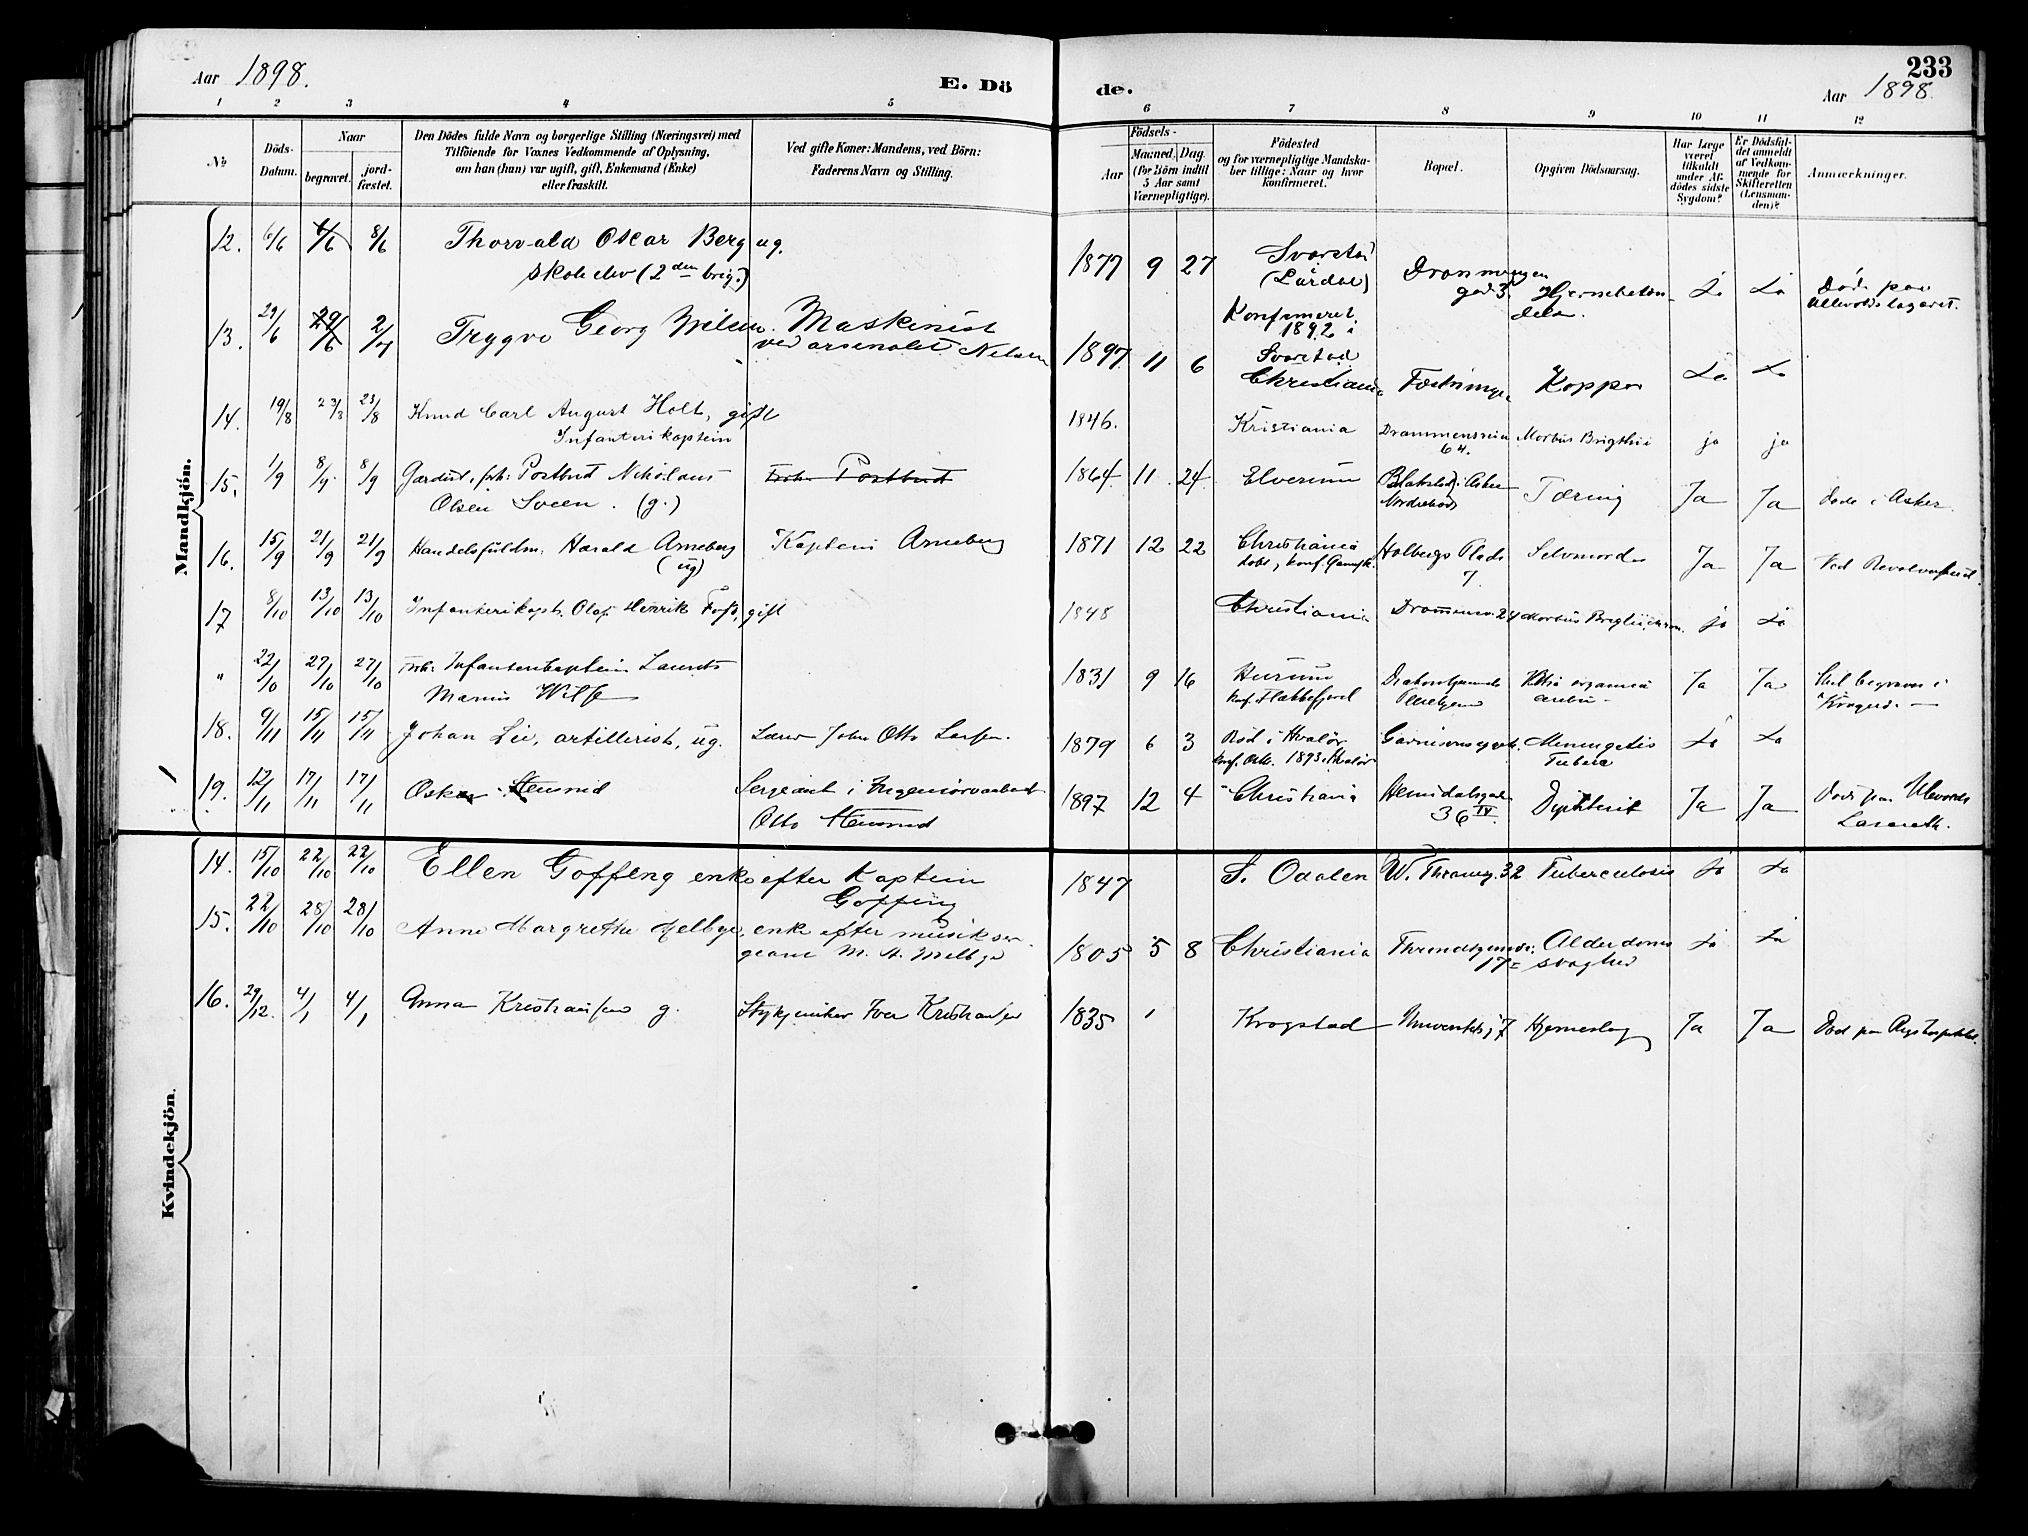 Aar 1898.
E. Dö
de.
233
Aar 1898.
1 2 3 4 5 6 7 8 9 10 11 12
№
Döds-
Datum.
Naar
begravet.
jord-
fæstet.
Den Dödes fulde Navn og borgerlige Stilling (Næringsvei) med
Tilföiende for Voxnes Vedkommende af Oplysning,
om han (hun) var ugift, gift, Enkemand (Enke)
eller fraskilt.
Ved gifte Koner: Mandens, ved Börn:
Faderens Navn og Stilling.
Födsels-
Aar
Maaned. Dag.
(for Börn indtil
5 Aar samt
Værnepligtige).
Födested
og for værnepligtige Mandska-
ber tillige: Naar og hvor
konfirmeret.
Bopæl.
Opgiven Dödsaarsag.
Har Læge
været
tilkaldt
under Af-
dödes sidste
Sygdom?
Er Dödsfal-
det anmeldt
af Vedkom-
mende for
Skifteretten
(Lensman-
den)?
Anmærkninger.
Mandkjön.
12. 6/6 6/6 8/6 Thorvald Oscar Berg ug.
skoleelev (2den brig.)
1877 9 27 Svarstad
(Lardal)
Konfirmeret
1892 i
Svarstad
Dronningen
gad 3. Hjernebetæn-
delse. Ja Ja Död paa
13. 29/6 29/6 2/7 Trygve Georg Nilsen. Maskinist
ved arsenalet Nilsen
1897 11 6 Christiania Fæstningen Kopper Ja Ja
14. 19/8 23/8 23/8 Knud Carl August Holt, gift
Infanterikaptein
1846. Kristiania Drammensveien
64. Morbus Brigthii ja ja
15. 1/9 8/9 8/9 Gardist, fh. Postbud Nikolaus
Olsen Sveen. (g.) Postbud
1864. 11 24 Elverum Blakstad i Asker
Tæring Ja Ja Döde i Asker.
16. 15/9 21/9 21/9 Handelsfuldm. Harald Arneberg
(ug) Kaptein Arneberg
1871 12 22 Christiania
döbt, konf. Garnisk. Holbergs Plads
7. Selvmord Ja Ja Ved Revolverskud.
17 8/10 13/10 13/10 Infanterikapt. Olaf Henrik gift
1848 Christiania Drammensv. 24 Morbus Brigthii ja Ja
" 22/10 27/10 27/10 Infanterikaptein Laurits
Marius
1831 9 16 Hurum
Konf. Flekkefjord Ja Ja Skal begraves i
Kragerö.
18. 9/11 15/11 15/11 Johan Lie, artillerist, ug. Lærer John Otto Larsen.
1879 6 3 Röd i Hvaler
konf. Okt. 1893 i Hvaler Garnisonssygeh. Meningitis
Tuberc Ja Ja
19. 12/11 17/11 17/11 Oskar Stensrud Sergeant i Ingeniörvaabnet
Otto Stensrud
1897 12 4 Christiania Hemsdalsgade
36 IV. Dyfterit Ja Ja Död paa Ulevaals
Lazareth.
Kvindekjön.
14. 15/10 22/10 22/10 Ellen Goffeng enke efter Kaptein
Goffeng
1847 S. Odalen W. Thranesg. 32 Tuberculosis Ja Ja
15. 22/10 28/10 28/10 Anne Margrethe Melbye, enke efter musikser-
geant M. A. Melbye
1805 5 8 Christiania Throndhjemsv.
17 Alderdoms
svaghed Ja Ja
16. 29/12. 4/1 4/1 Anna Kristiansen g. Stykjunker Iver Kristiansen
1835 1 Krogstad Universitetsg 7 Hjerneslag Ja Ja Död paa Rigshospitalet.